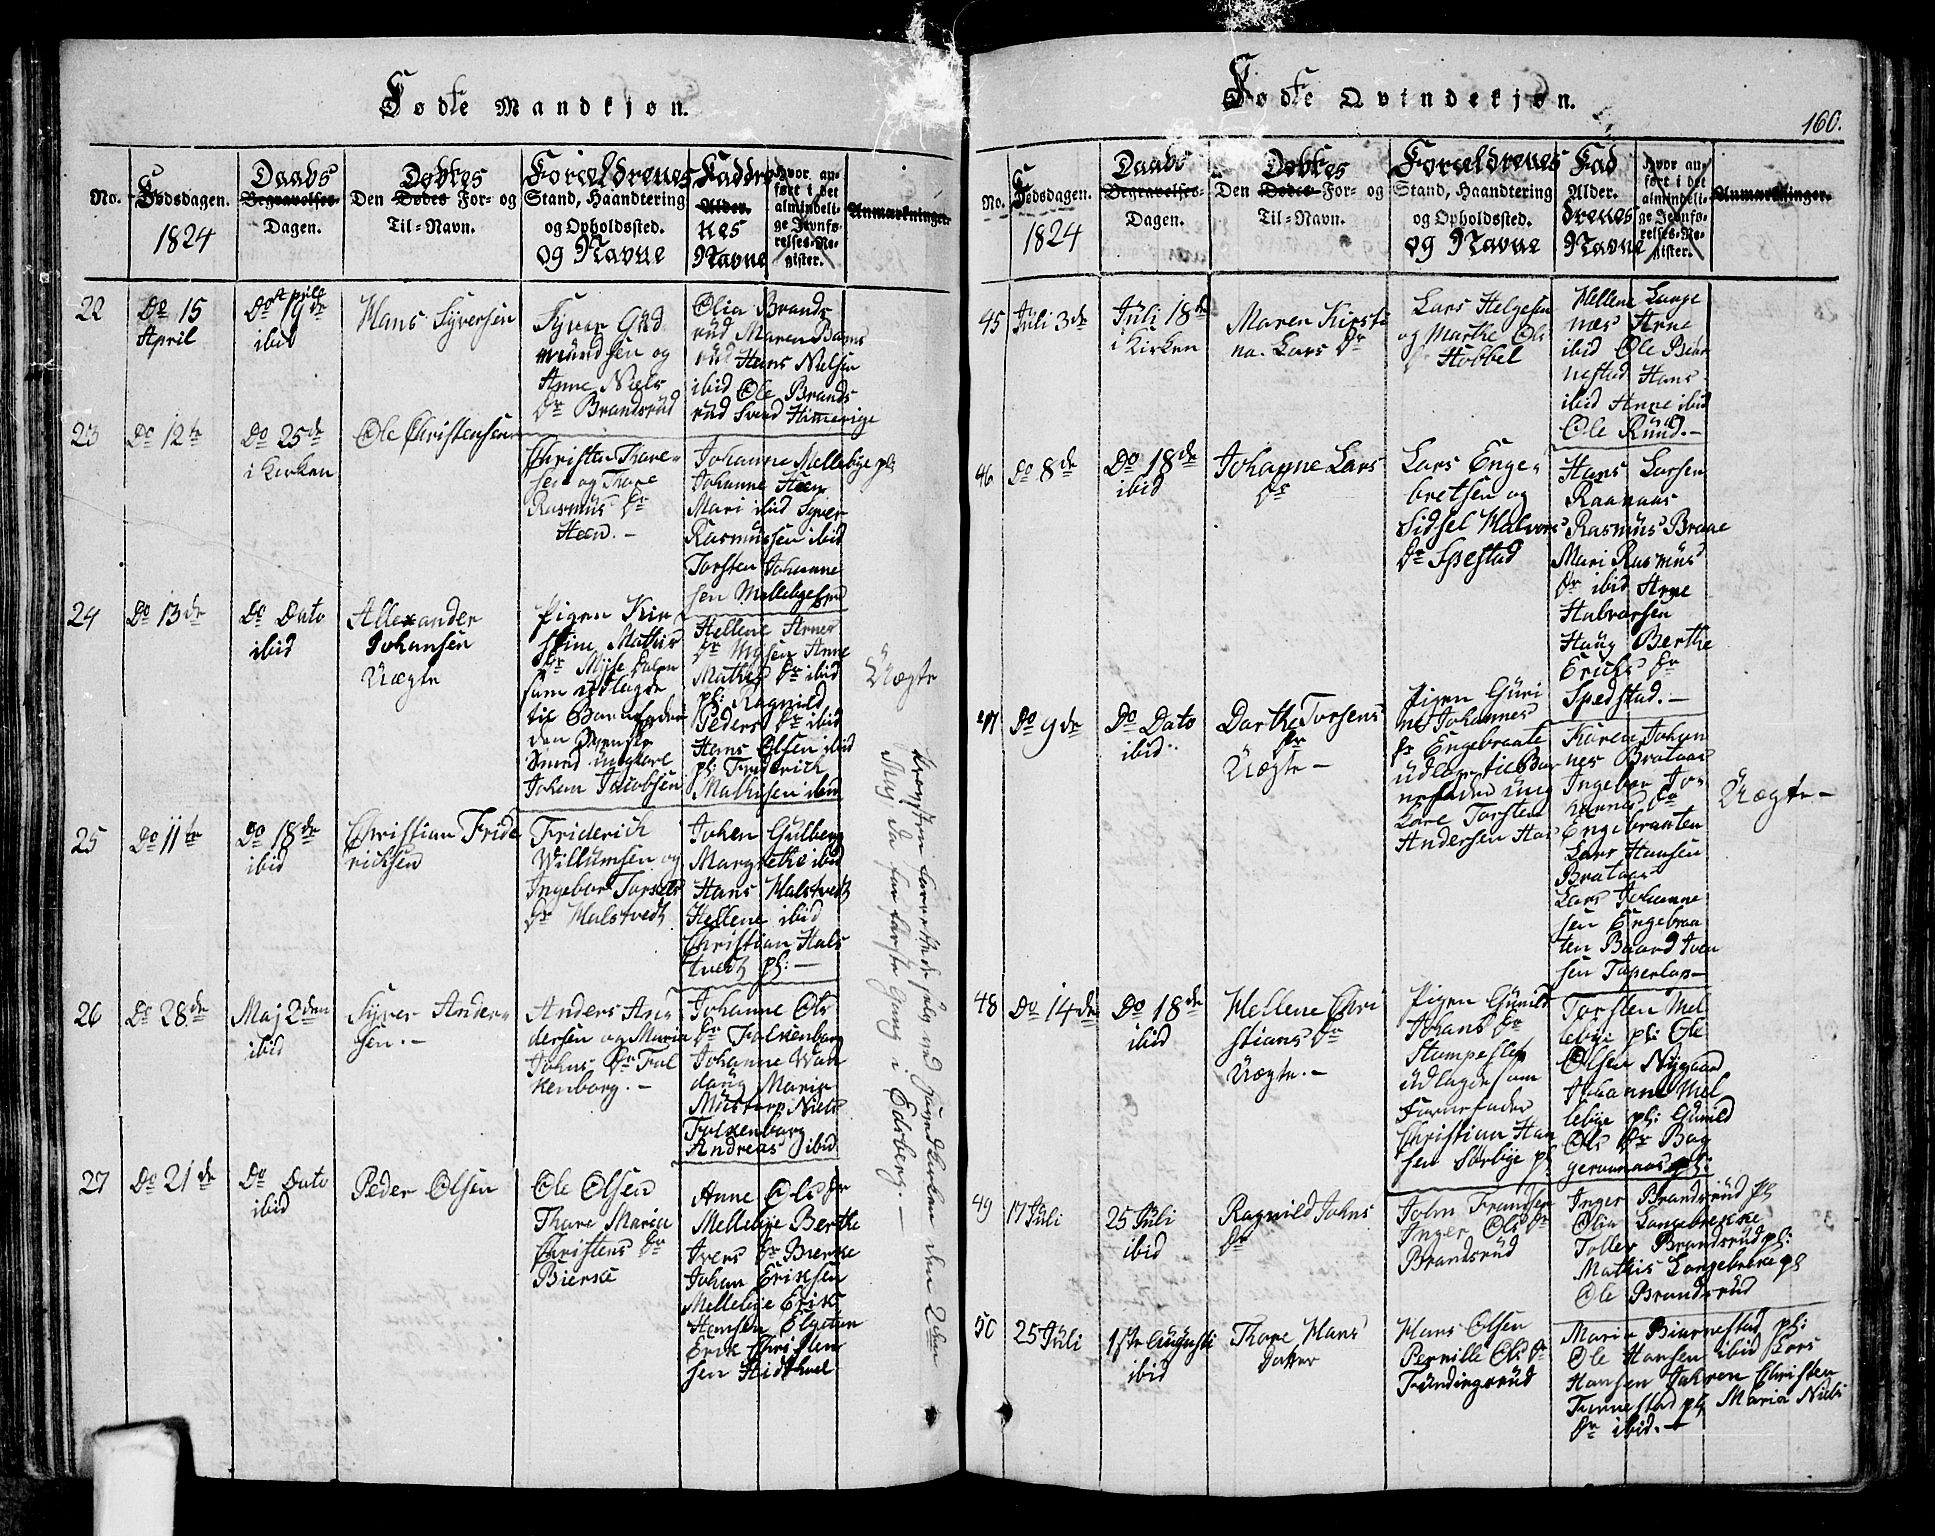 Fødte Mandkjøn.
No.
Fødsdagen.
1824
Daabs
Begravelses-
Dagen.
Døbtes
Den Dødes For- og
Til-Navn.
Forældrenes
Stand, Haandtering
og Opholdssted.
og Navne
Faddre
Alder.
nes
Navne
Hvor an-
ført i det
almindeli-
ge Jevnfø-
relses-Re-
gister.
Anmærkninger.
22
Do 15
April
Do April 19de
ibid
Hans Syversen
Syver Gud
mundsen og
Anne Niels
Dr Brandsrud
Olia Brands
rud Maren
rud Hans Nielsen
ibid Ole Brands
rud Svend
23
Do 12te
Do 25de
i Kirken
Ole Christensen
Christen Thore-
sen og Thore
Rasmus Dr
Heen.-
Johanne Mellebye pl:
Johanne Heen
Mari ibid Syver
Rasmussen ibid
Torsten Johanne
sen Mellebye
24
Do 13de
Do Dato
ibid
Allexander
Johansen
Uægte
Pigen Kir
stine Mathis
Dr Myse
som udlagte
til Barnefader
den Svenske
Smed ungkarl
Johan Jacobsen
Hellene Arnes
Dr Mysen Anne
Mathis Dr ibid
pl: Ragnild
Peders Dr ibid
Hans Olsen ibid
pl: Friderich
Mathisen ibid
Uægte
25
Do 11te
Do 18de
ibid
Christian Fride
richsen
Friderich
Willumsen og
Ingebor Torstes
Dr Halstvedt
Johen Gulberg
Margrethe ibid
Hans Halstvedt
Hellene ibid
Christian Hals
tvedt pl: -
26
Do 28de
Maj 2den
ibid
Syver Ander-
sen.-
Anders An-
dersen og Maria
Johns Dr Fal
kenborg.-
Johanne Ols
Dr Falkenborg
Johanne Wan
daug Maria
Mustorp Niels
Falkenborg
Andreas ibid
27
Do 21de
Do Dato
ibid
Peder Olsen
Ole Olsen
Thore Maria
Christens Dr
Bierke
Anne Ols Dr
Mellebye Berthe
Ivers Dr Bierke
Johan Eriksen
Mellebye Erik
Hansen
Erik Christen
sen
den 2den
Maj da for første Gang i Edsberg.-
Fødte Qvindekjøn.
160.
No.
Fødsdagen.
1824
Daabs
Begravelses-
Dagen.
Døbtes
Den Dødes For- og
Til-Navn.
Forældrenes
Stand, Haandtering
og Opholdssted.
og Navne
Fad
Alder.
drenes
Navne
Hvor an-
ført i det
almindeli-
ge Jevnfø-
relses-Re-
gister.
Anmærkninger.
45
Juli 3de
Juli 18de
i Kirken
Maren Kirsti
na. Lars Dr
Lars Helgesen
og Marthe Ols
Dr Hobbel
Hellene Lange
næs Arne
ibid Ole Biør
nestad Hans
ibid Anne ibid
Ole Ruud.-
46
Do 8de
Do 18de
ibid
Johanne Lars
Dr
Lars Enge-
bretsen og
Sidsel Halvors
Dr Spestad
Hans Larsen
Raanaas
Rasmus Braae
Mari Rasmus
Dr ibid Arne
Halvorsen
Haug Berthe
Erichs Dr
Spedstad.-
47
Do 9de
Do Dato
ibid
Dorthe Torstens
Dr
Uægte -
Pigen Guri
ne Johannes
Dr Engebraate
udlagt til Bar
nefader ung
karl Torsten
Andersen Aas
Karen Johan
nes Brataas
Ingebor Jo-
hannes Dr
Engebraaten
Lars Hansen
Brataas
Lars Johanne
sen Engebraa
ten Baard Iver
sen
Uægte -
48
Do 14de
Do 18de
ibid
Hellene Chri
stians Dr
Uægte.-
Pigen Gunild
Johans Dr
Stumpeslet
udlagde som
Barnefader
Christian Han
sen Sørbye pl
Torsten Mel
lebye pl: Ole
Olsen Nygaard
Johanne Mel
lebye pl: Gunild
Ols Dr Bag
geraanaas pl:
49
17 Juli
25 Juli
ibid
Ragnild Johns
Dr
John Frandsen
Inger Ols Dr
Brandsrud
Inger Brandsrud pl
Olia Langebrekke
Toller Brandsrud pl:
Mathis Langebreke pl
Ole Brandsrud
50
25 Juli
1ste Augusti
ibid
Thore Hans
Datter
Hans Olsen
Pernille Ols Dr
Fundingsrud
Maria Biørnestad pl:
Ole Hansen ibid Lars
Hansen Jahren Christen
Furnestad pl Maria Niels
Dr ibid.-